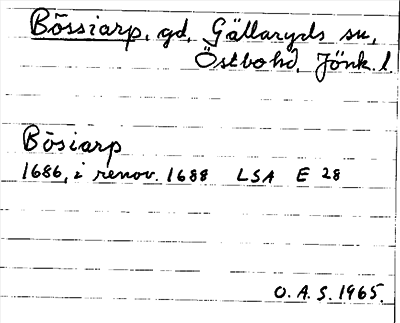 Bössiarp, gd, Gällaryds sn,
Östbo hd, Jönk. l.
Bösiarp
1686, i renov. 1688 LSA E 28
O. A. S. 1965.